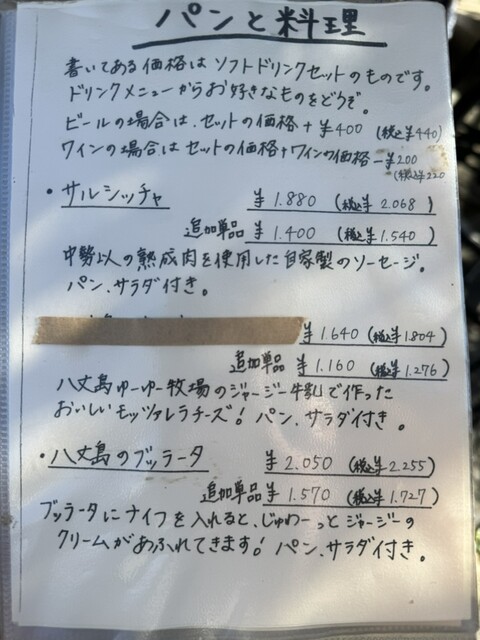 パンと料理
書いてある価格は ソフトドリンクセットのものです。
ドリンクメニューからお好きなものをどうぞ。
ビールの場合は、セットの価格 + ¥400 (税込¥440)
ワインの場合は セットの価格+ワインの価格 -¥200
(税込¥220
・サルシッチャ ¥1.880 (税込¥2.068)
追加単品 ¥1.400 (税込¥1.540)
中勢以の熟成肉を使用した自家製のソーセージ。
パン、サラダ付き。
¥1.640 (税込¥1.804)
追加単品 ¥1.160 (税込¥1.276)
八丈島ゆーゆー牧場のジャージー牛乳で作った
おいしいモッツァレラチーズ! パン、サラダ付き。
・八丈島のブッラータ ¥2.050 (税込¥2.255)
追加単品 ¥1.570 (税込¥1.727)
ブッラータにナイフを入れると、じゅわーっとジャージーの
クリームがあふれてきます! パン、サラダ付き。